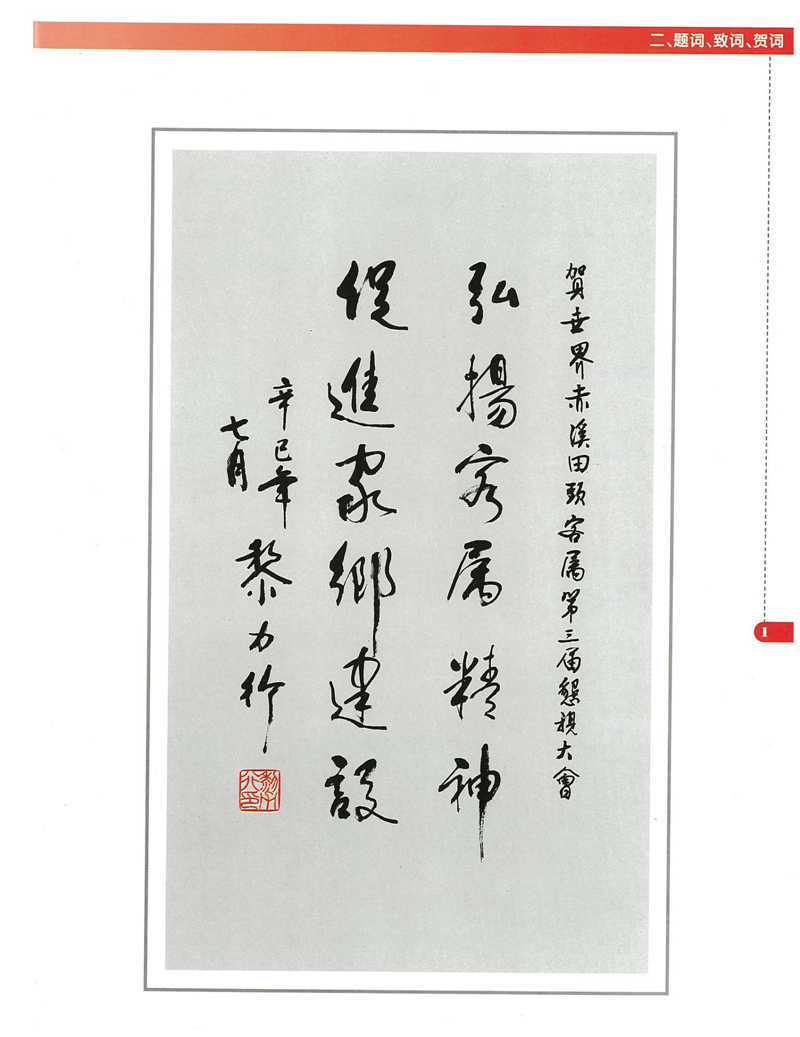 二、题词、致词、贺词
賀世界赤溪田頭客属第三届懇親大會
弘揚客属精神
促進家鄉建設
辛巳年
七月
黎力行
1